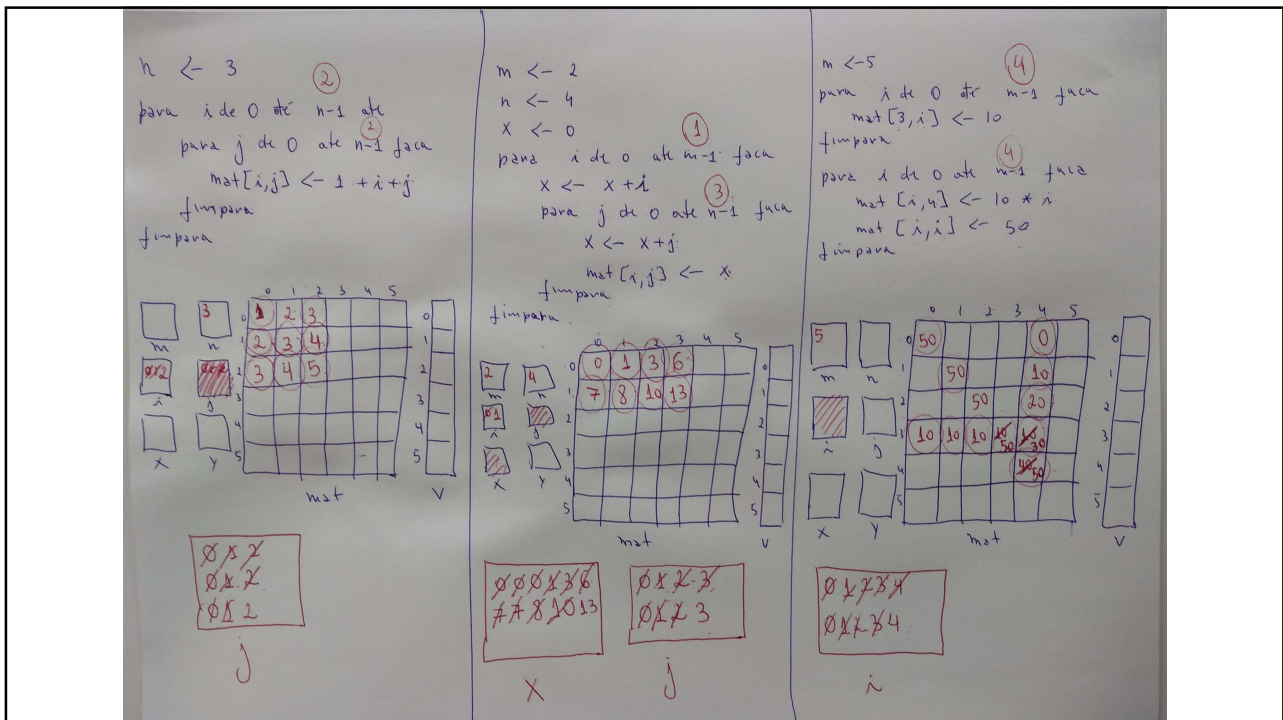 n <- 3
2
para i de 0 até n-1 ate
2
para j de 0 ate n-1 faca
mat[i,j] <- 1 + i+j
fimpara
fimpara
0 1 2 3 4 5
0 1 2 3
1 2 3 4
2 3 4 5
3
4
5
3
m n
0 1 2 0 1 2
i j
x y
mat
0
1
2
3
4
5
v
0 1 2
0 1 2
0 1 2
j
m <- 2
n <- 4
X <- 0
1
para i de 0 ate m-1 faca
x <- x+i
3
para j de 0 até n-1 faca
x <- x+j
mat[i,j] <- x
fimpara
fimpara
0 1 2 3 4 5
0 0 1 3 6
1 7 8 10 13
2
3
4
5
2 4
m n
0 1
i j
x y
mat
0
1
2
3
4
5
v
0 0 0 1 3 6
7 7 8 10 13
x
0 1 2 3
0 1 2 3
j
m <-5
4
para i de 0 até m-1 faca
mat[3,i] <- 10
fimpara
4
para i de 0 ate m-1 faca
mat[i,4] <- 10 * i
mat [i,i] <- 50
fimpara
0 1 2 3 4 5
0 50 0
1 50 10
2 50 20
3 10 10 10 10 50 10 30
4 40 50
5
5
m n
i j
x y
mat
0
1
2
3
4
5
v
0 1 2 3 4
0 1 2 3 4
i